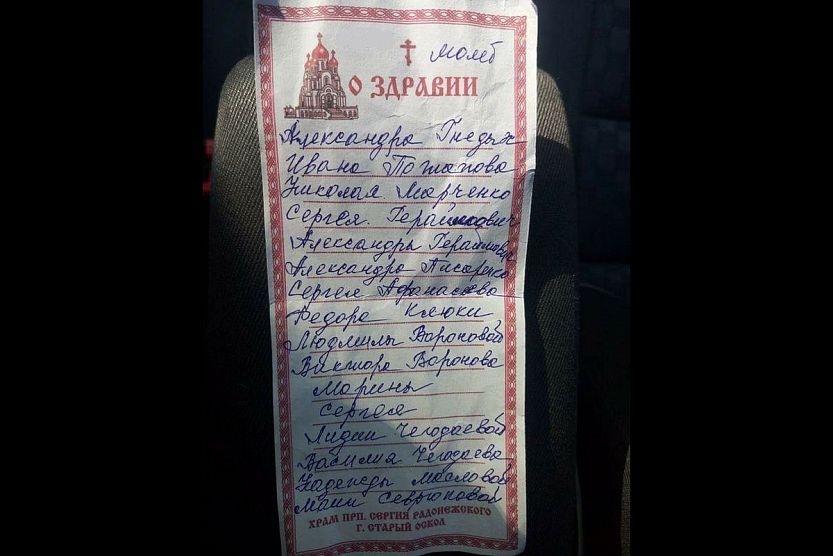 Молеб
О ЗДРАВИИ
Александра Гнедых
Ивана Потапова
Николая Марченко
Сергея Гераймович
Александры Гераймович
Александра Писаренко
Сергея Афанасьева
Федора Клюки
Людмилы Вороновой
Виктора Воронова
Марины
Сергея
Лидии Чегодаевой
Василия Чегодаева
Надежды Масловой
Маии Севрюковой
ХРАМ ПРП. СЕРГИЯ РАДОНЕЖСКОГО
Г. СТАРЫЙ ОСКОЛ